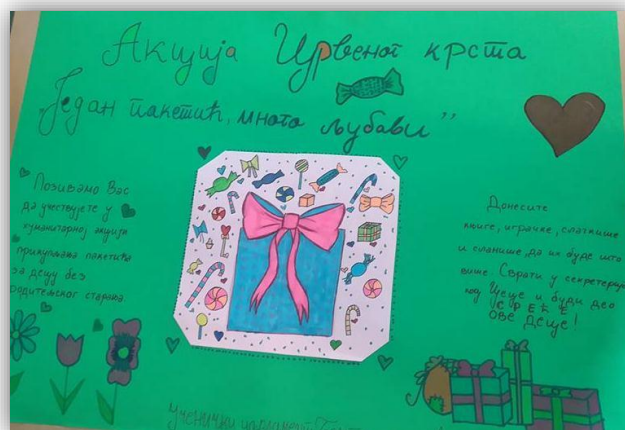 Акција Црвеног крста
„Један пакетић, много љубави”
Позивамо Вас
да учествујете у
хуманитарној акцији
прикупљања пакетића
за децу без
родитељског старања.
Донесите
књиге, играчке, слаткише
и слانише, да их буде што
више. Сврати у секретаријат
код Цеце и буди део
СРЕЋЕ
ОВЕ ДЕЦЕ!
Ученички парламент